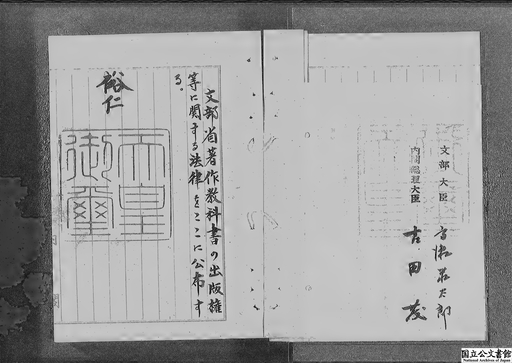 文部大臣 高瀬荘太郎
内閣総理大臣 吉田茂
文部省著作教科書の出版権
等に関する法律をここに公布す
る。
裕仁
天皇
御璽
国立公文書館
National Archives of Japan